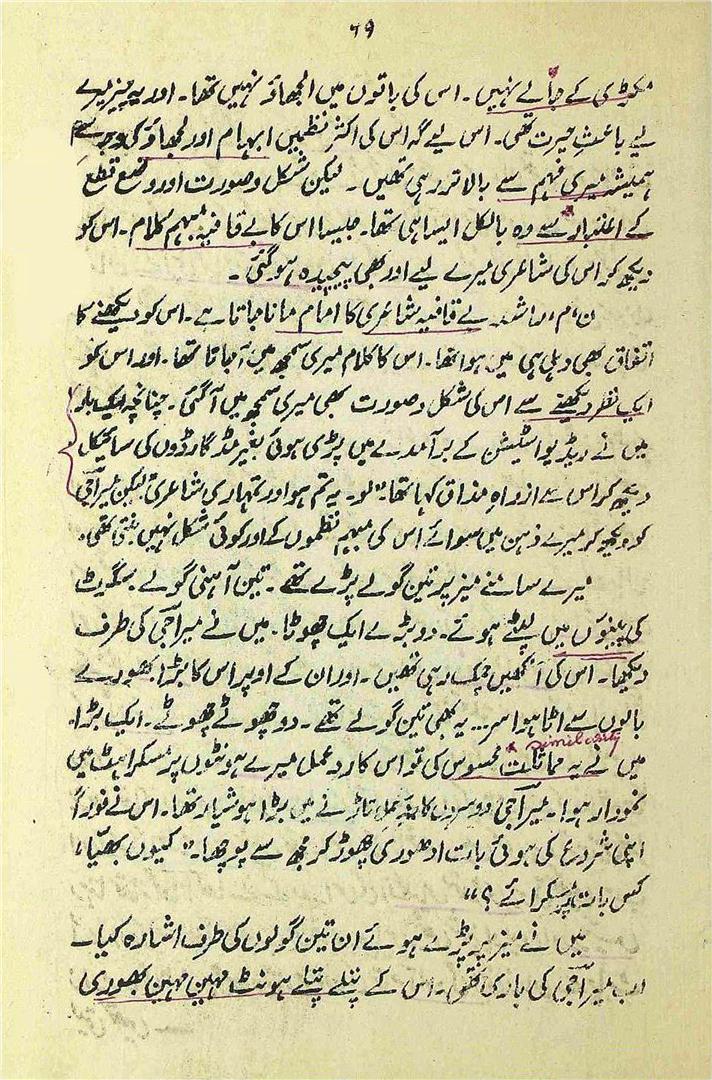 ۶۹
مکڑی کے جالے نہیں۔ اس کی باتوں میں الجھاؤ نہیں تھا۔ اور یہ چیز میرے
لیے باعثِ حیرت تھی۔ اس لیے کہ اس کی اکثر نظمیں ابہام اور الجھاؤ کی وجہ سے
ہمیشہ میری فہم سے بالاتر رہی تھیں۔ لیکن شکل و صورت اور وضع قطع
کے اعتبار سے وہ بالکل ایسا ہی تھا۔ جیسا اس کا بے قافیہ مبہم کلام۔ اس کو
دیکھ کر اس کی شاعری میرے لیے اور بھی پیچیدہ ہو گئی۔
ن، م، راشد بے قافیہ شاعری کا امام مانا جاتا ہے۔ اس کو دیکھنے کا
اتفاق بھی دہلی ہی میں ہوا تھا۔ اس کا کلام میری سمجھ میں آ جاتا تھا۔ اور اس کو
ایک نظر دیکھنے سے اس کی شکل و صورت بھی میری سمجھ میں آ گئی۔ چنانچہ ایک بار
میں نے ریڈیو اسٹیشن کے برآمدے میں پڑی ہوئی بغیر مڈگارڈوں کی سائیکل
دیکھ کر اس سے ازراہِ مذاق کہا تھا۔ "لو۔ یہ تم ہو اور تمہاری شاعری" لیکن میراجی
کو دیکھ کر میرے ذہن میں سوائے اس کی مبہم نظموں کے اور کوئی شکل نہیں بنتی تھی۔
میرے سامنے میز پر تین گولے پڑے تھے۔ تین آہنی گولے۔ سگریٹ
کی پنیوں میں لپٹے ہوئے۔ دو بڑے ایک چھوٹا۔ میں نے میراجی کی طرف
دیکھا۔ اس کی آنکھیں چمک رہی تھیں۔ اور ان کے اوپر اس کا بڑا بھورے
بالوں سے اٹا ہوا سر... یہ بھی تین گولے تھے۔ دو چھوٹے چھوٹے۔ ایک بڑا۔
similarity
میں نے یہ مماثلت محسوس کی تو اس کا ردِ عمل میرے ہونٹوں پر مسکراہٹ میں
نمودار ہوا۔ میراجی دوسروں کا ردِ عمل تاڑنے میں بڑا ہوشیار تھا۔ اس نے فوراً
اپنی شروع کی ہوئی بات ادھوری چھوڑ کر مجھ سے پوچھا۔ "کیوں بھیّا،
کس بات پر مسکرائے؟"
میں نے میز پر پڑے ہوئے ان تین گولوں کی طرف اشارہ کیا۔
اب میراجی کی باری تھی۔ اس کے پتلے پتلے ہونٹ مہین مہین بھوری